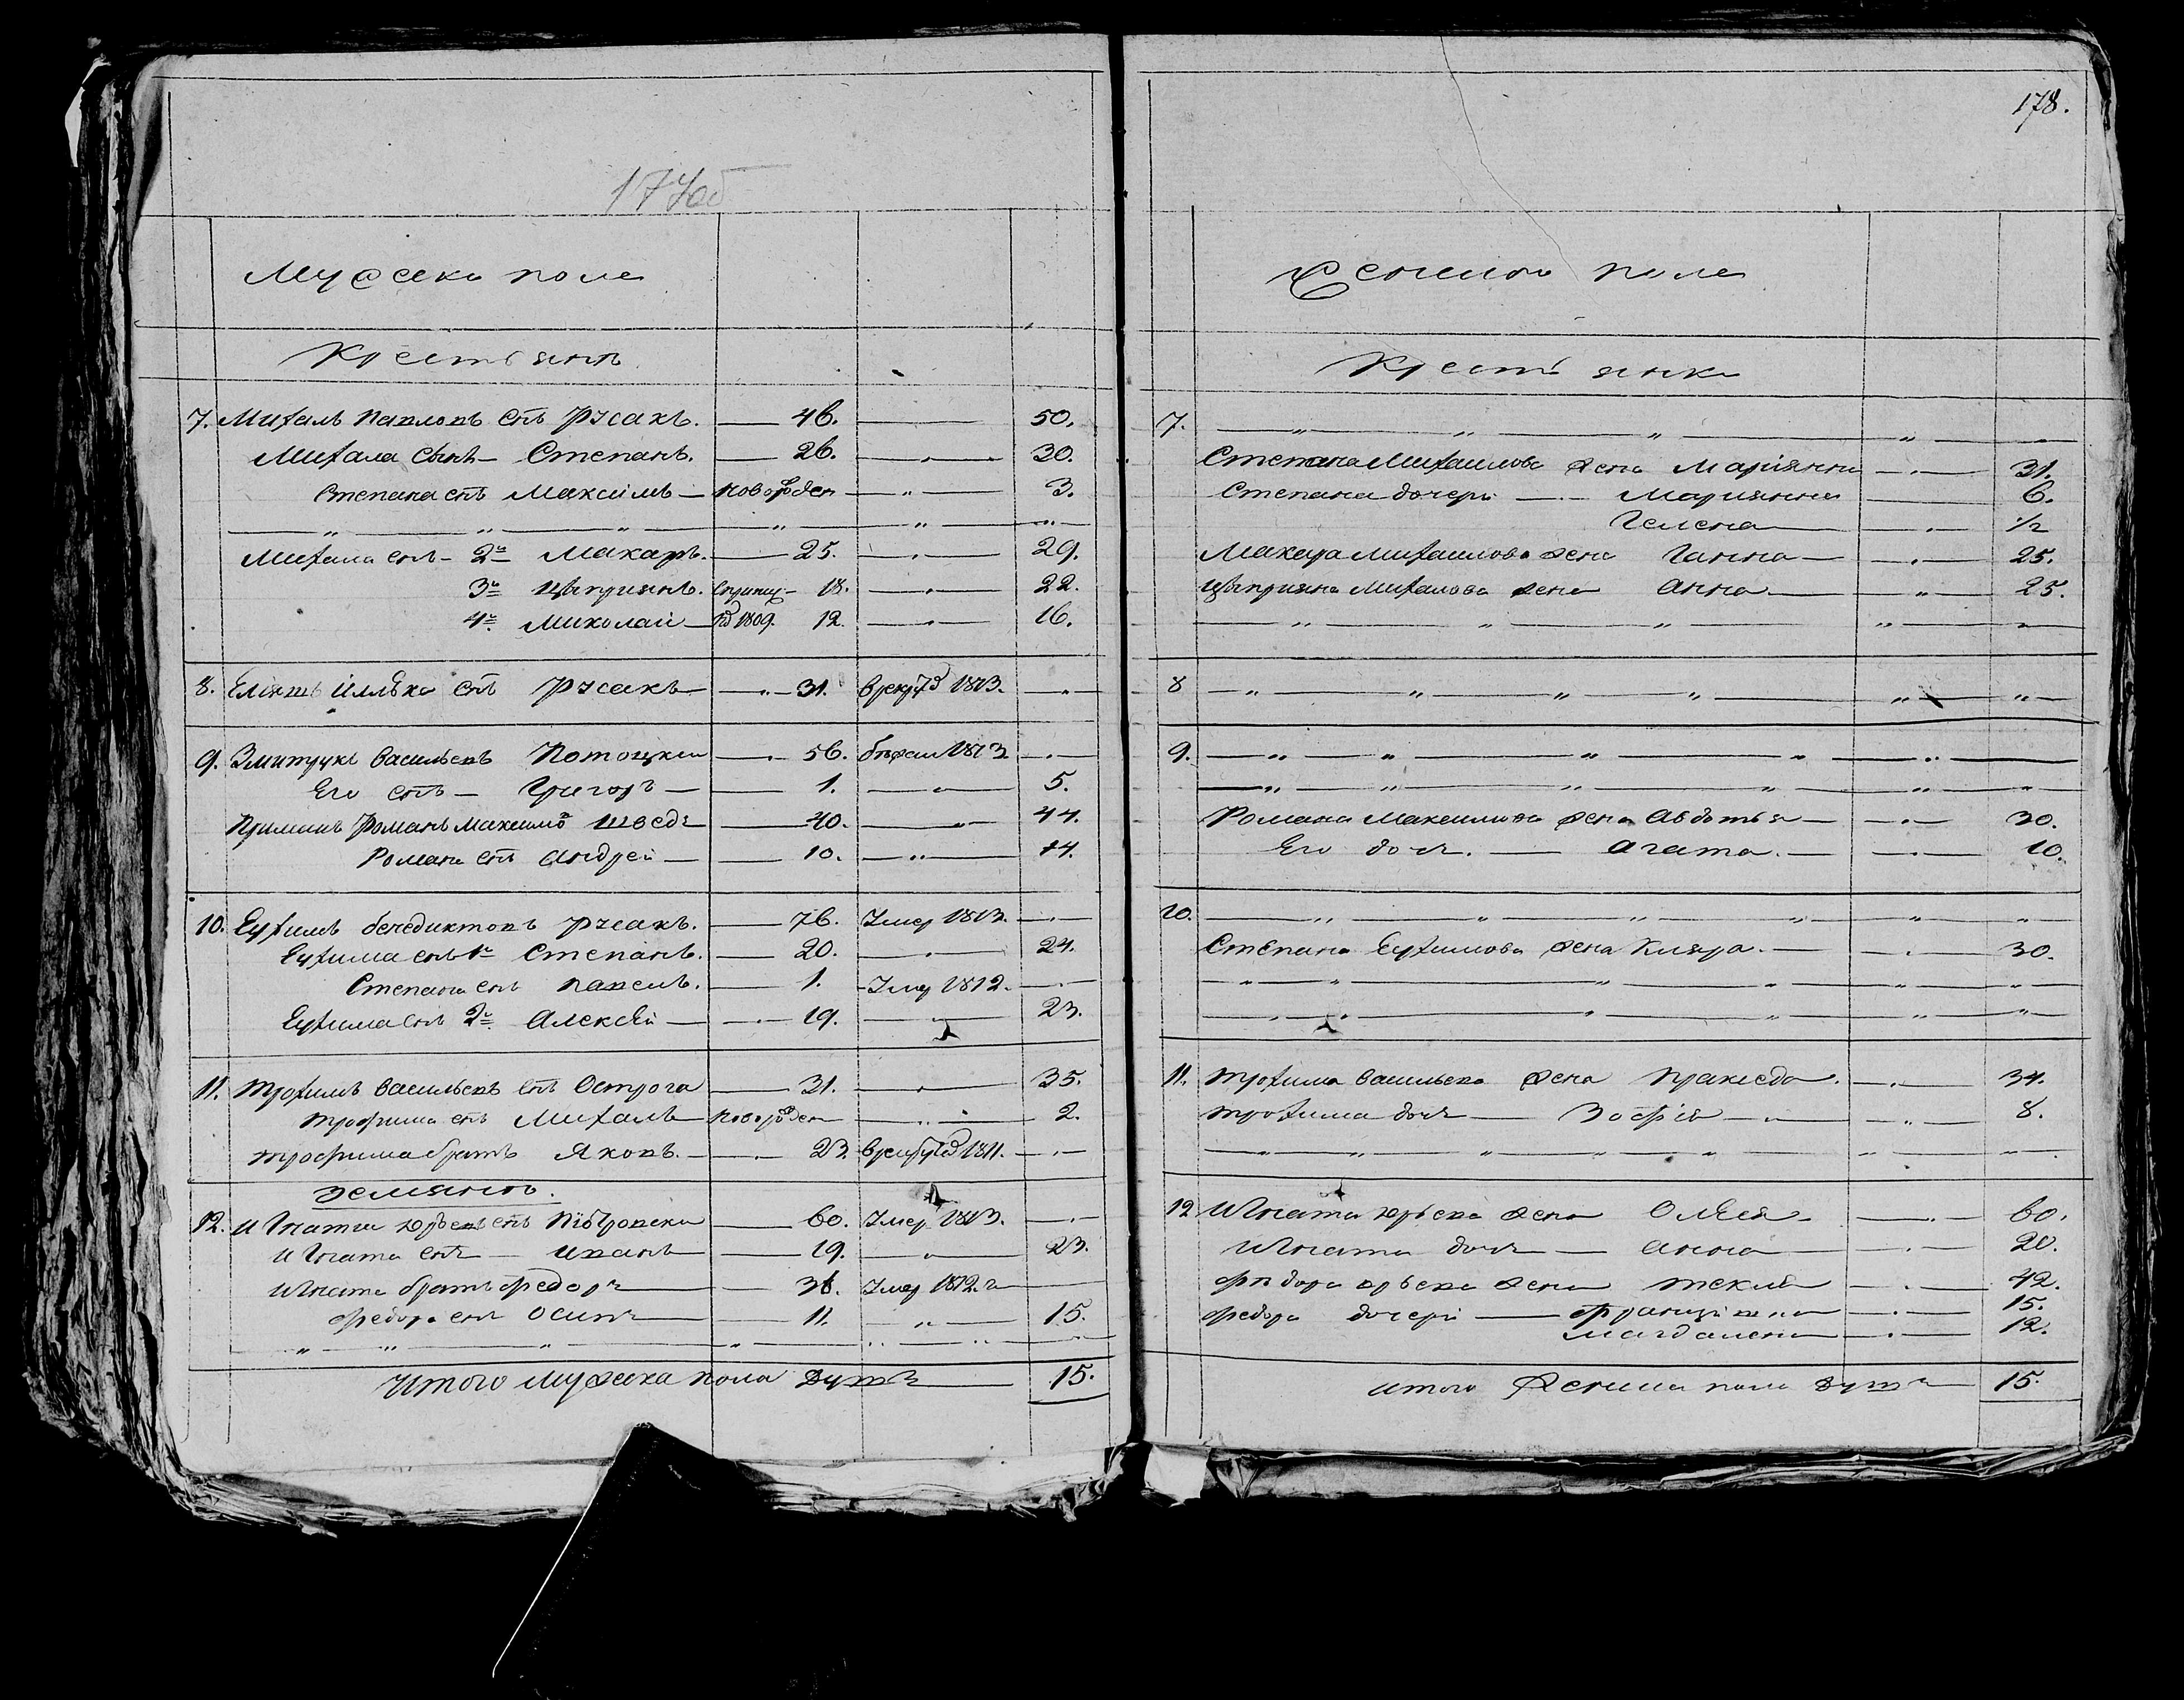 174об
Мужеска пола
Крестьянъ
7. Михалъ Павловъ снъ Русакъ. 46. 50.
Михала сынъ Степанъ. 26. 30.
Степана снъ Максимъ новорожден 3.
Михала снъ 2й Макаръ. 25. 29.
3й Цыприянъ. 18. 22.
4й Миколай 1809. 12. 16.
8. снъ Русакъ 31. 1813.
9. Змитрукъ Васильевъ Потоцкий 56. бежал 1813.
Его снъ Григоръ 1. 5.
Примакъ Романъ Максимов Шведъ 40. 44.
Романа снъ Андрей 10. 14.
10. Еухимъ Бенедиктовъ Русакъ. 76. Умер 1813.
Еухима снъ 1й Степанъ. 20. 24.
Степана снъ Павелъ. 1. Умер 1812.
Еухима снъ 2й Алексей 19. 23.
11. Трохимъ Васильевъ снъ Острога 31. 35.
Трофима снъ Михалъ новорожден 2.
Трофима братъ Яковъ. 23. 1811.
Земянъ.
12. Игнатий Юрьевъ снъ 60. Умер 1813.
Игната снъ Иванъ 19. 23.
Игната братъ Федоръ 38. Умер 1812.
Федора снъ Осипъ 11. 15.
Итого мужеска пола душъ 15.
178.
Женска пола
Крестьянки
7.
Степана Михайлова жена Мариянна 31.
Степана дочери Мариянна 6.
Гелена 1/2
Макара Михайлова жена Ганна 25.
Цыприяна Михалова жена Анна 25.
8
9.
Романа Максимова жена Авдотья 30.
Его доч. Агата. 10.
10.
Степана Еухимова жена Кляра. 30.
11. Трохима Васильева жена Пракседа. 34.
Трохима доч Зофия 8.
12 Игната Юрьева жена 60.
Игната доч Анна 20.
Федора Юрьева жена Текля 42.
Федора дочери 15.
Магдалена 12.
Итого женска пола душъ 15.